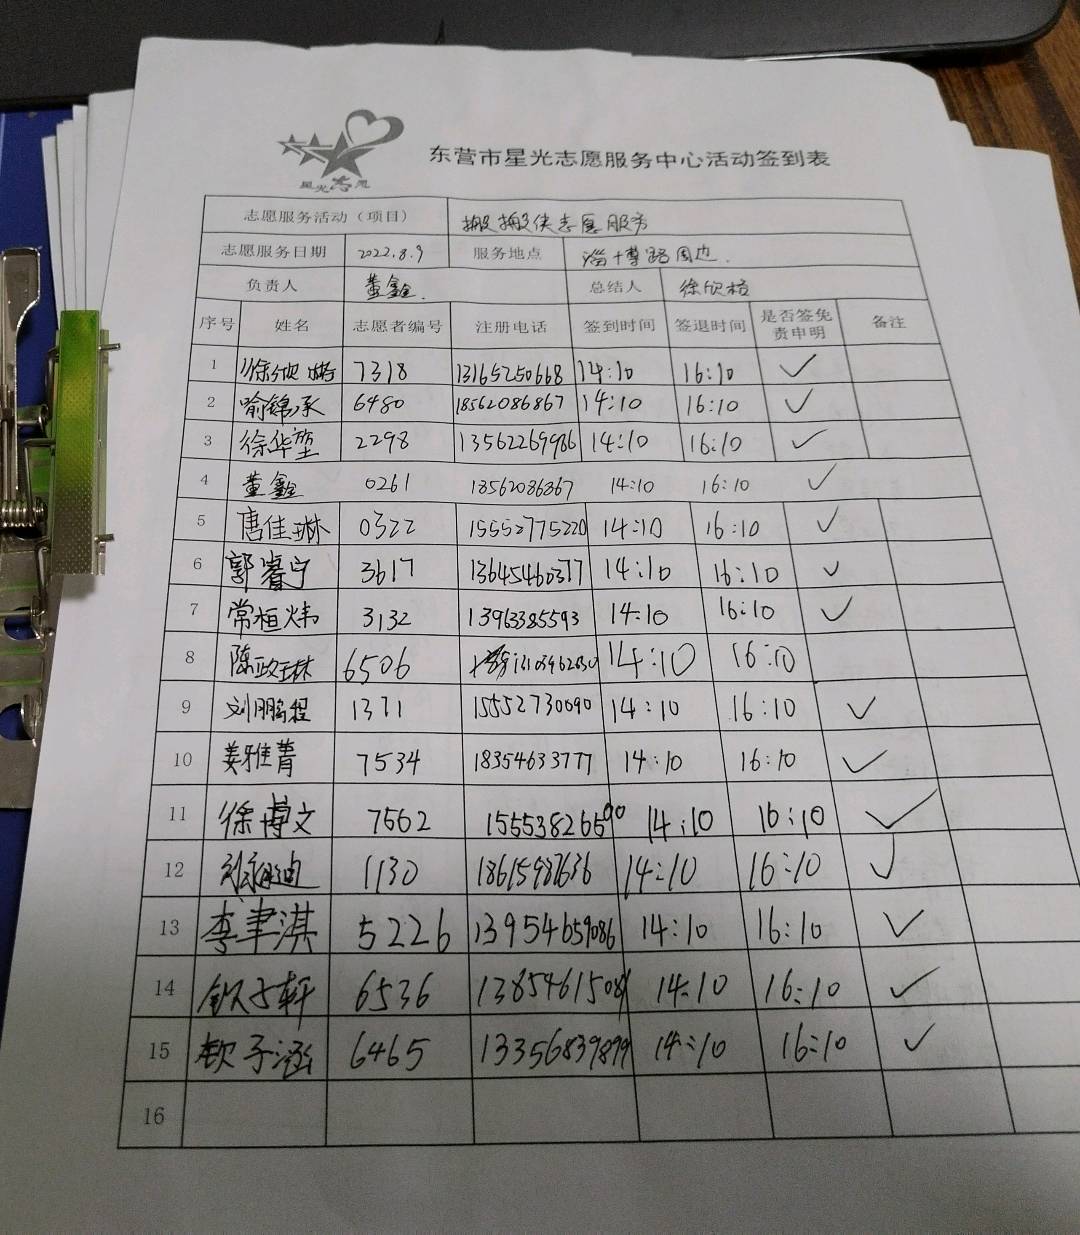 星光志愿
东营市星光志愿服务中心活动签到表
志愿服务活动（项目） 搬搬侠志愿服务
志愿服务日期 2022.8.9 服务地点 淄博路周边.
负责人 董鑫. 总结人 徐欣格
序号 姓名 志愿者编号 注册电话 签到时间 签退时间 是否签免责申明 备注
1 徐欣格 7318 13165250668 14:10 16:10 ✓
2 喻锦承 6480 18562086867 14:10 16:10 ✓
3 徐华堃 2298 13562269986 14:10 16:10 ✓
4 董鑫 0261 18562086867 14:10 16:10 ✓
5 唐佳琳 0322 15552775220 14:10 16:10 ✓
6 郭睿宁 3617 13645460377 14:10 16:10 ✓
7 常桓炜 3132 13963385593 14:10 16:10 ✓
8 陈政琳 6506 14:10 16:10
9 刘鹏程 1371 15552730690 14:10 16:10 ✓
10 姜雅菁 7534 18354633777 14:10 16:10 ✓
11 徐博文 7562 15553826590 14:10 16:10 ✓
12 1130 18615987636 14:10 16:10 ✓
13 李聿淇 5226 13954659086 14:10 16:10 ✓
14 钦子轩 6536 14:10 16:10 ✓
15 钦子涵 6465 13356839899 14:10 16:10 ✓
16